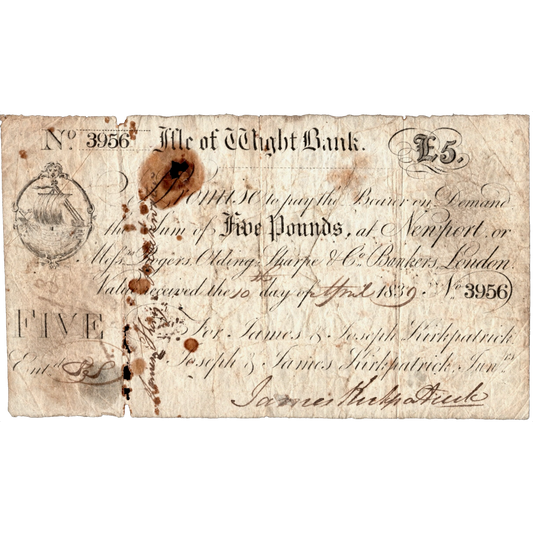 No. 3956 Isle of Wight Bank. £5.
I Promise to pay the Bearer on Demand
the Sum of Five Pounds, at Newport, or
Messrs. Rogers, Olding, Sharpe & Co. Bankers, London
Value received the 10th day of April 1839. No. 3956
FIVE
For James & Joseph Kirkpatrick
Entd.
Joseph & James Kirkpatrick Junrs.
James Kirkpatrick